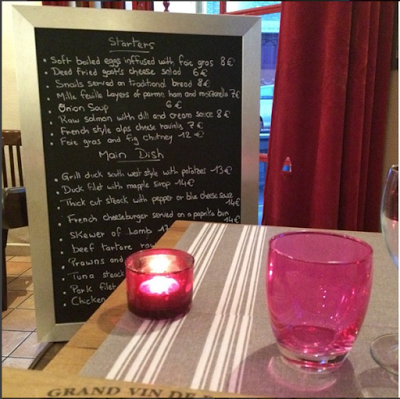 Starters
• Soft boiled eggs infused with foie gras 8€
• Deed fried goat's cheese salad 6€
• Snails served on traditional bread 8€
• Mille feuille layers of parma ham and mozzarella 7€
• Onion Soup 6€
• Raw salmon with dill and cream sauce 8€
• French style alps cheese 7€
• Foie gras and fig chutney 12€
Main Dish
• Grill duck south west style with potatoes 13€
• Duck filet with mapple sirop 14€
• Thick cut steack with pepper or blue cheese sauce 14€
• French cheeseburger served on a paprika bun 14€
• Skewer of Lamb
• beef tartare
• Prawns and
• Tuna steack
• Pork filet
• Chicken
GRAND VIN DE